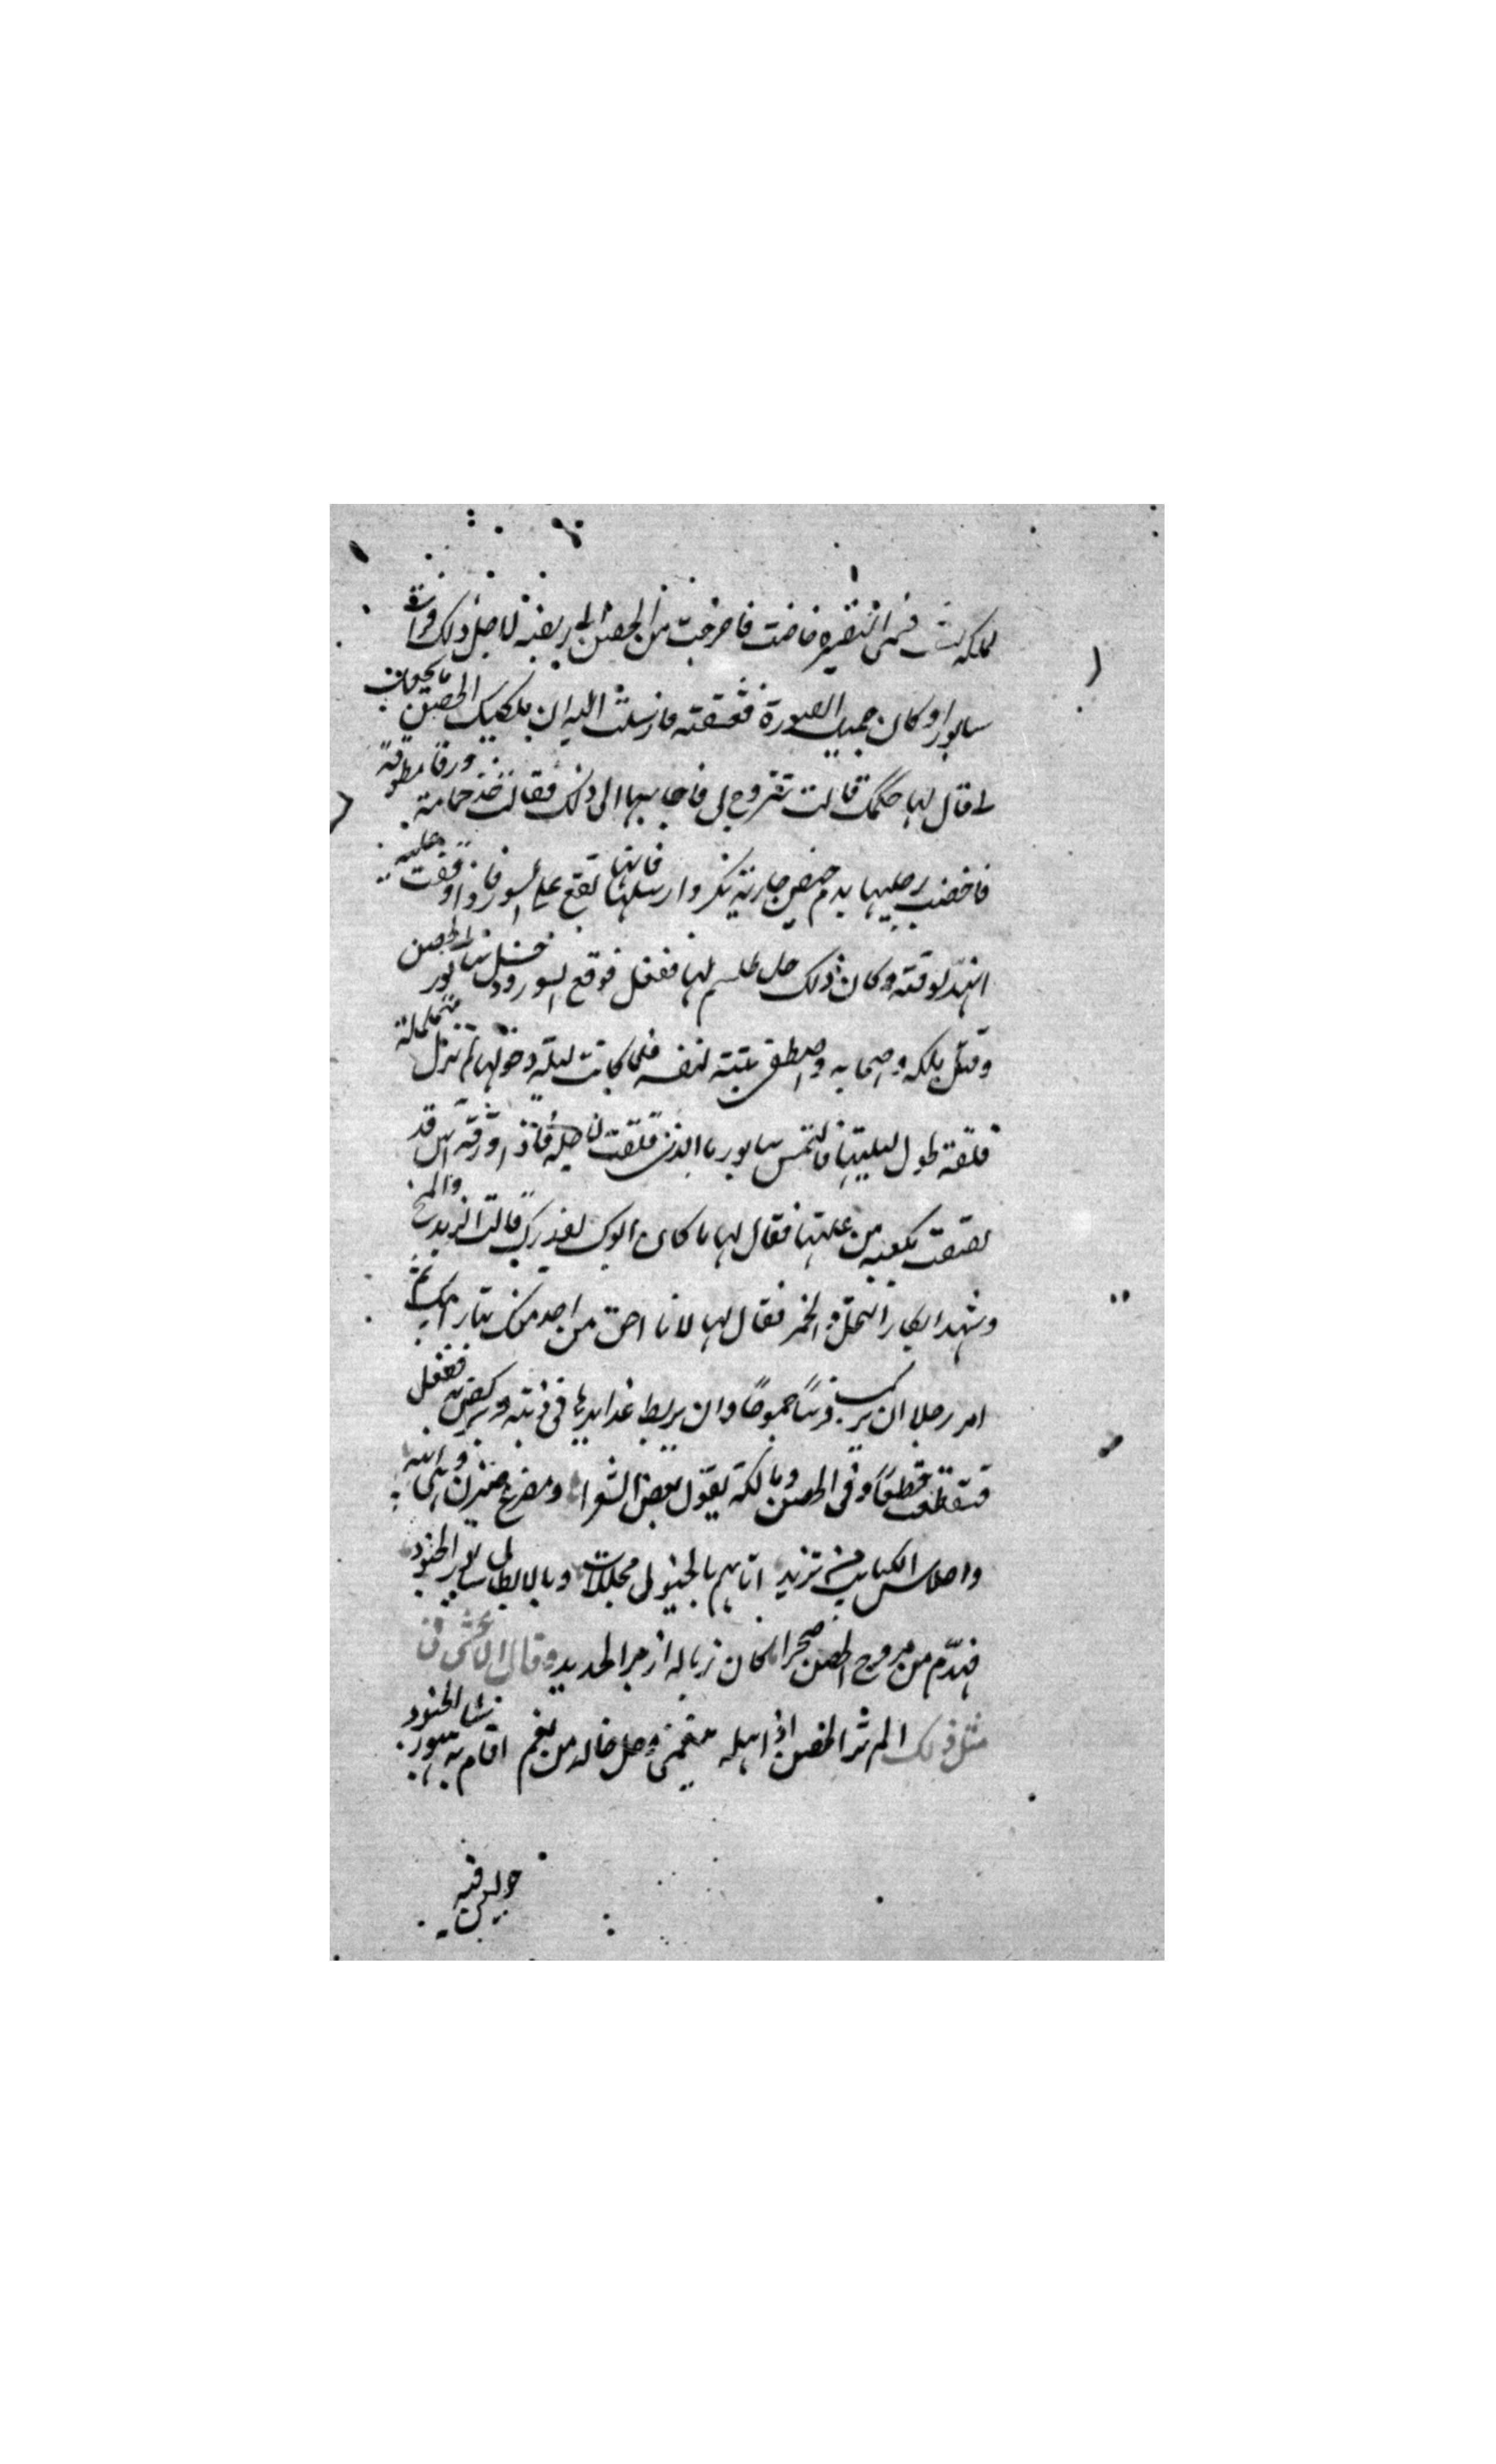 لملكه بنت تسمى النضيرة حاضت فاخرجت من الحصن الى ربضه لاجل ذلك فرات
سابورا وكان جميل الصورة فعشقته فارسلت اليه ان ملكتك الحصن ما يجب
لى قال لها حكمك قالت تتزوج بى فاجابها الى ذلك فقالت خذ حمامة ورقا مطوقة
فاخضب رجليها بدم حيض جارية بكر وارسلها فانها تقع على السور فاذا وقعت عليه
انهد لوقته وكان ذلك حل طلسم لها ففعل فوقع السور ودخل سابور الحصن
وقتل ملكه واصحابه واصطفى بنته لنفسه فلما كانت ليلة دخولها لم تزل متململة
قلقة طول ليلتها فالتمس سابور ما الذى قلقت لاجله فاذا ورقة آس قد
لصقت بعكنة من عكنها فقال لها ما كان ابوك يغذيك قالت الزبد والمخ
وشهد ابكار النحل والخمر فقال لها لانا احق من احد منك بثار ابيك ثم
امر رجلا ان يركب فرسا جموحا وان يربط غدايرها فى ذنبه ويركض به ففعل
فتقطعت قطعا وفى الحصن ومالكه يقول بعض الشعرا ومصرع ضيزن وبنى ابيه
واحلاس الكتايب من تزيد اتاهم بالخيول مجللات وبالابطال سابور الجنود
فهدم من بروج الحصن صخرا كان زباله ازبر الحديد وقال الاعشى فى
مثل ذلك الم تر الحضر اذ اهله بنعمى وهل خالد من نعم اقام به شاهبور الجنود
حولين فيه